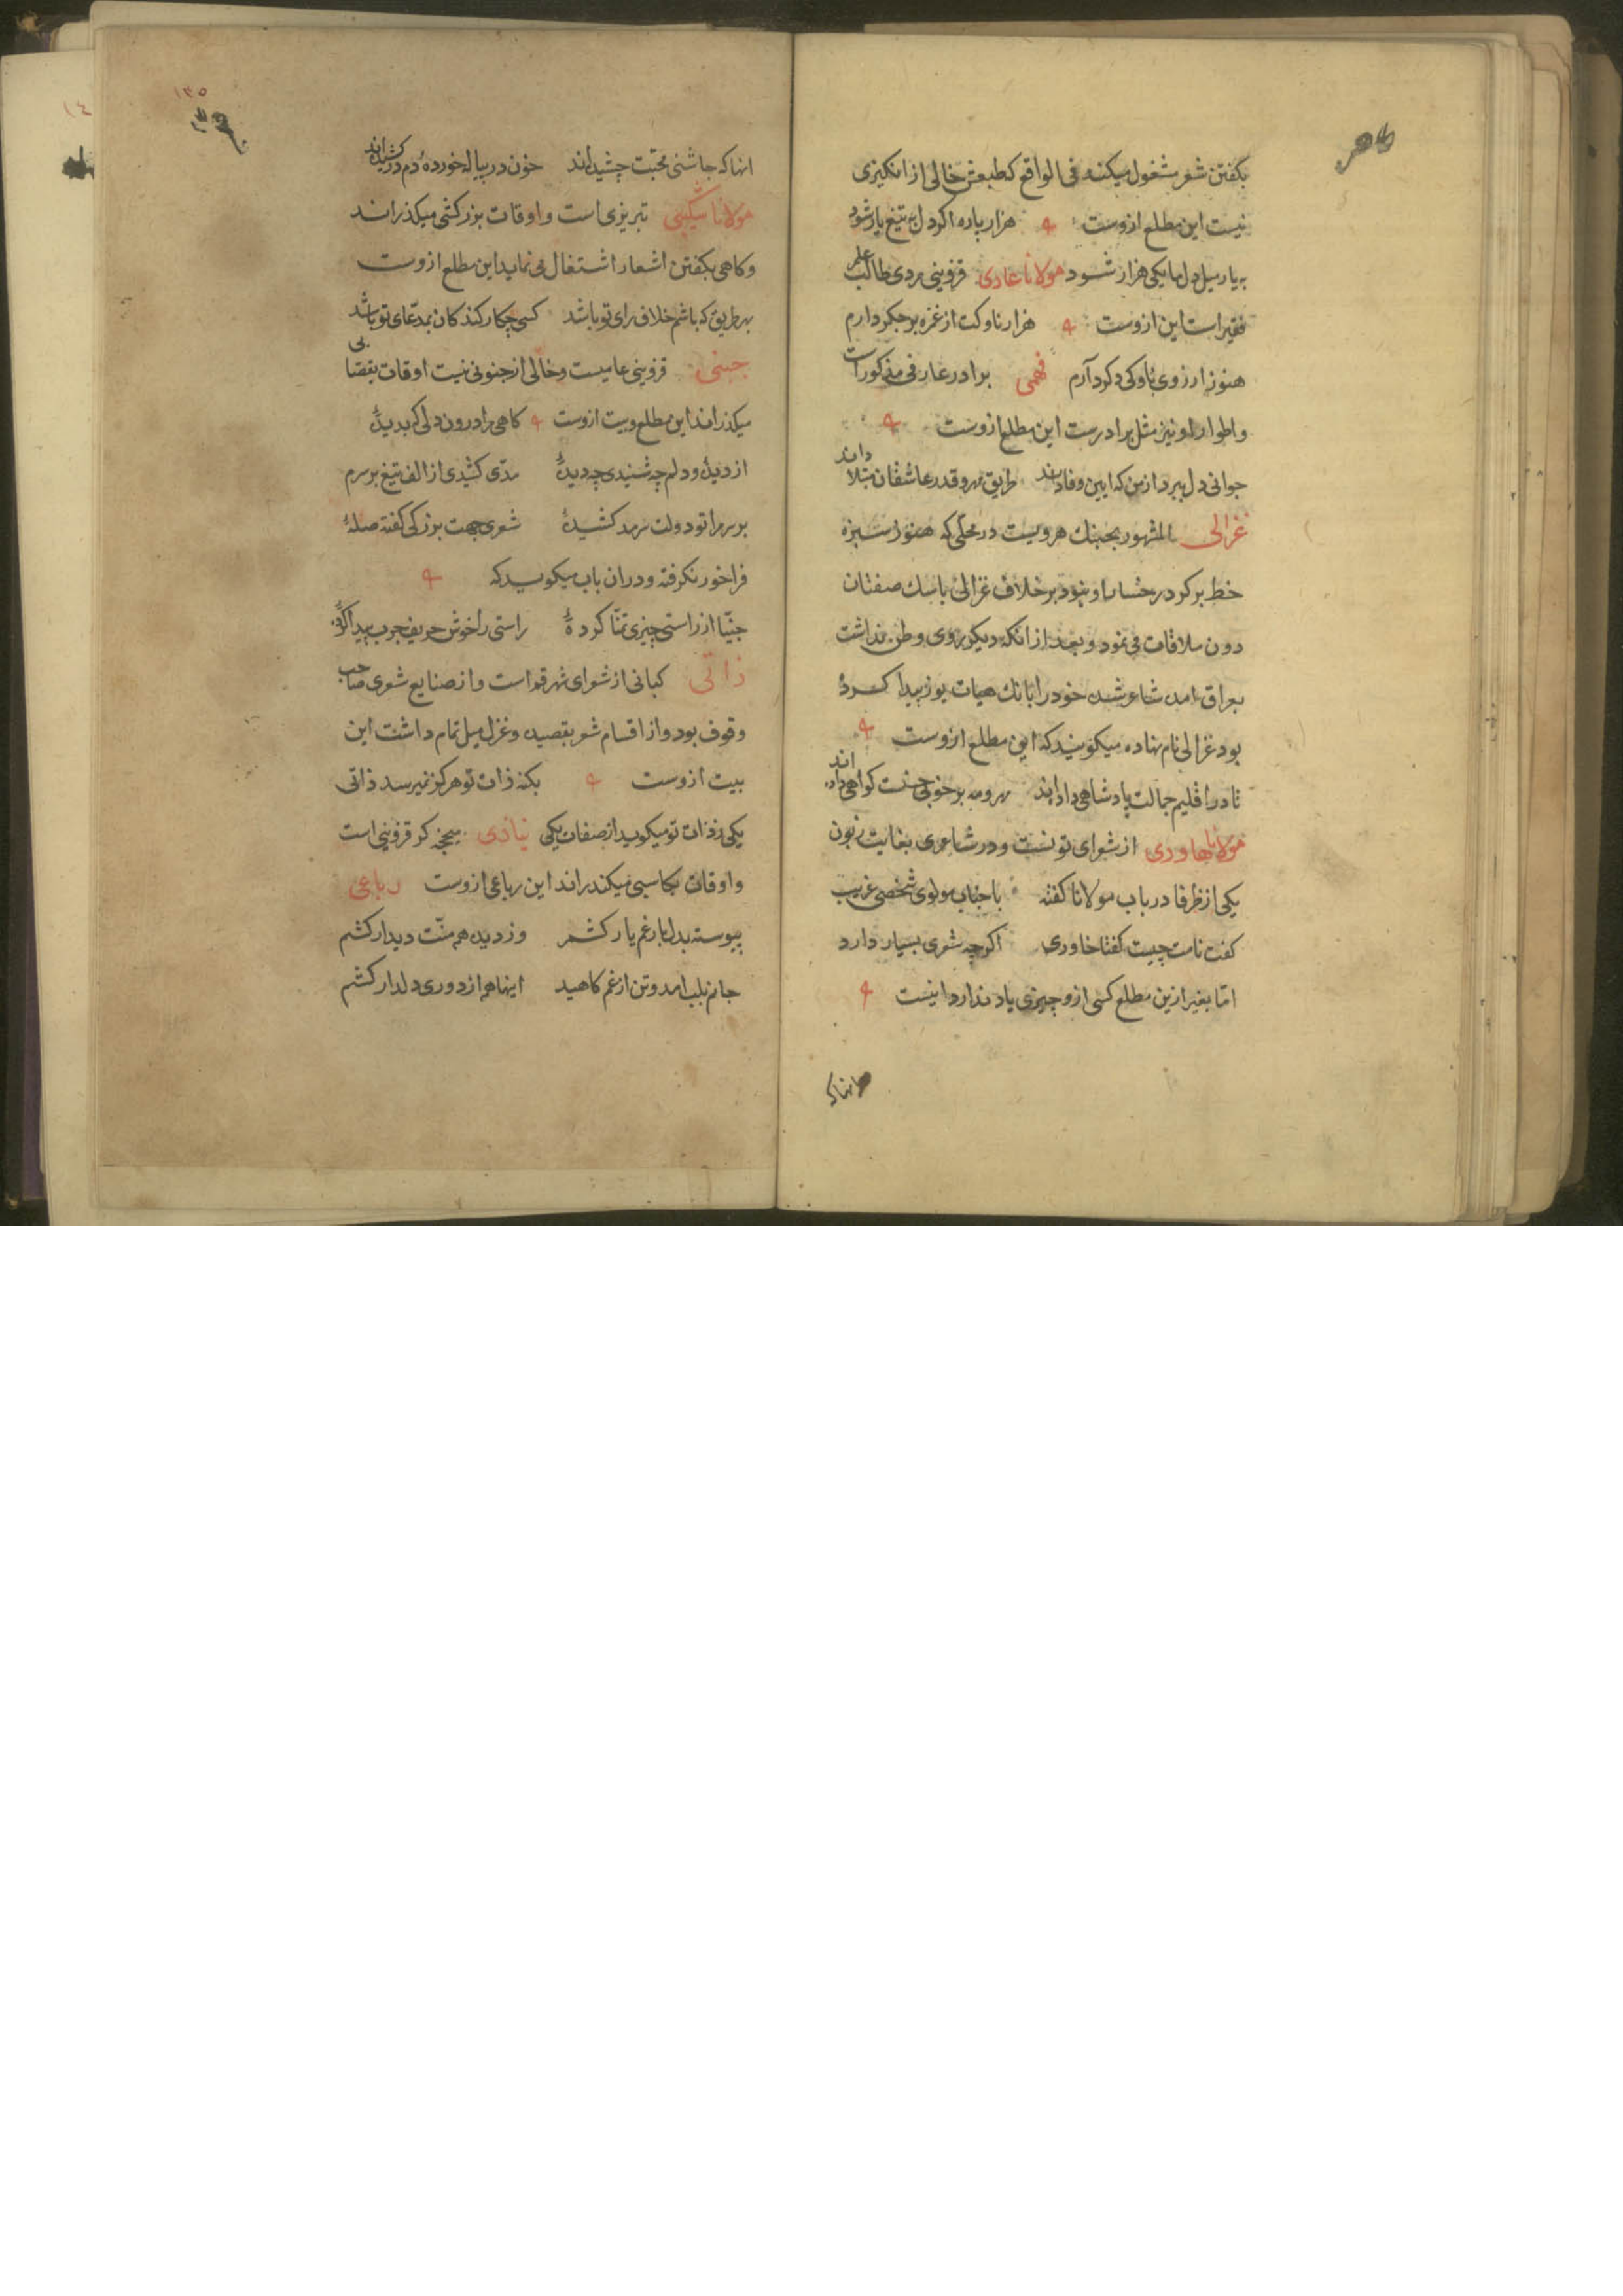 بگفتن شعر مشغول میکند فی الواقع که طبعش خالی از انگیزی
نیست این مطلع ازوست هزار پاره اگر دل به تیغ یار شود
به یار میل دل ما یکی هزار شود مولانا عادی قزوینی مردی طالب علم
فقیر است این ازوست هزار ناوکت از غمزه بر جگر دارم
هنوز ارزوی ناوکی دگر دارم فهمی برادر عارفی مذکور است
و اطوار او نیز مثل برادرست این مطلع ازوست
جوانی دل ببرد از من که ایین وفا داند طریق مهر و قدر عاشقان مبتلا داند
غزالی المشهور بجنبک هرویست در محلی که هنوز سبزه
خط بر گرد رخسار او نبود بر خلاف غزالی با سک صفتان
دون ملاقات می نمود و بعد از انکه دیگر روی وطن نداشت
بعراق امده شاعر شده خود را بانک هیات یوز پیدا کرده
بود غزالی نام نهاده میکویند که این مطلع ازوست
تا در اقلیم جمالت پادشاهی داده اند مهر و مه بر خوبی حسنت کواهی داده اند
مولانا خاوری از شعرای تونست و در شاعری بغایت زبون
یکی از ظرفا در باب مولانا کفته با جناب مولوی شخصی غریب
کفت نامت چیست کفتا خاوری اکرچه شعری بسیار دارد
اما بغیر ازین مطلع کسی ازو چیزی یاد ندارد اینست
انها که
۱۳۵
انها که چاشنی محبت چشیده اند خون در پیاله خورده و دم در کشیده اند
مولانا شکیبی تبریزی است و اوقات بزرکشی میکذراند
و کاهی بکفتن اشعار اشتغال می نماید این مطلع ازوست
بهر طریق که باشم خلاف رای تو باشد کسی چکار کند کان بمدعای تو باشد
جنتی قزوینی عامیست و خالی از جنونی نیست اوقات بقصابی
میکذراند این مطلع و بیت ازوست کاهی مرا درون دل که بدیده
از دیده و دلم چه شنیدی چه دیده مدی کشیدی از الف تیغ بر سرم
بر سرم را تو دولت سرمد کشیده شعری جهت بزرکی کفته صله
فراخور نکرفته و در ان باب میکوید که
جنتیا از راستی چیزی تمنا کرده راستی را خوش حریف چرب پیدا کرده
ذاتی کبانی از شعرای شهر قم است و از صنایع شعری صاحب
وقوف بود و از اقسام شعر بقصیده و غزل میل تمام داشت این
بیت ازوست بکنه ذات تو هرکز نمیرسد ذاتی
یکی ز ذات تو میکوید از صفات یکی نیازی قزوینی است
و اوقات بکاسبی میکذراند این رباعی ازوست رباعی
پیوسته بدل بار غم یار کشم وز دیده هم منت دیدار کشم
جانم بلب امد و تن از غم کاهید اینها هم از دوری دلدار کشم